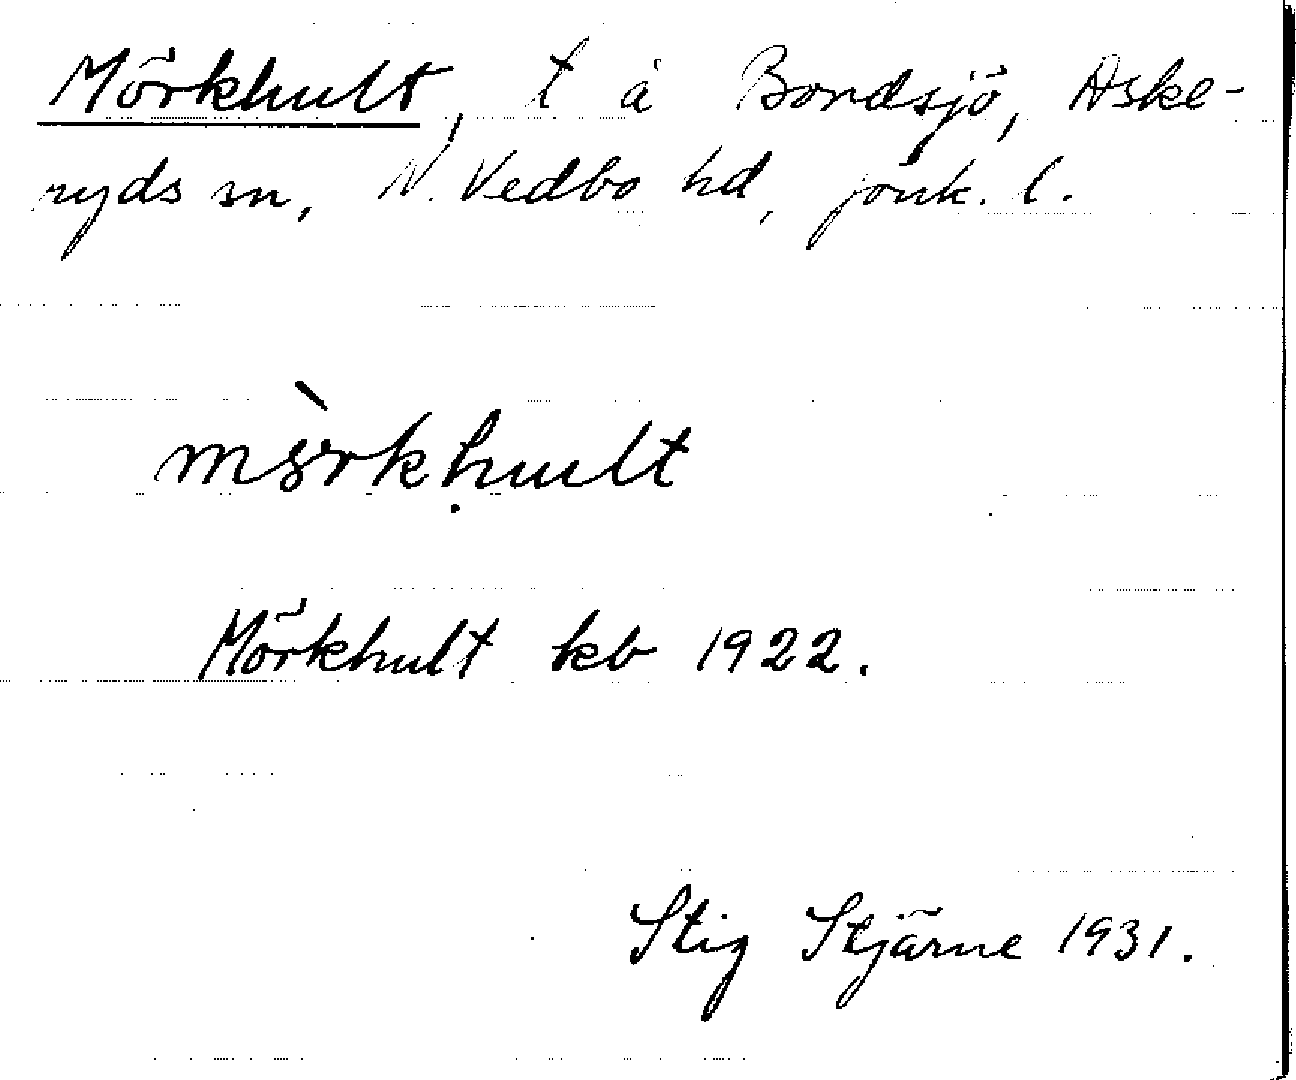 Mörkhult, t å Bondsjö, Aske-
ryds sn, N. Vedbo hd, jönk. l.
mörkhult
Mörkhult kb 1922.
Stig Stjärne 1931.